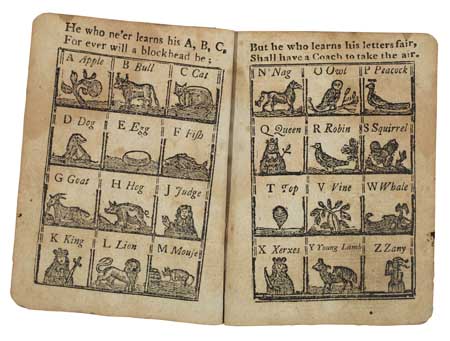 He who ne'er learns his A, B, C,
For ever will a blockhead be;
A Apple B Bull C Cat
D Dog E Egg F Fish
G Goat H Hog J Judge
K King L Lion M Mouse
But he who learns his letters fair,
Shall have a Coach to take the air.
N Nag O Owl P Peacock
Q Queen R Robin S Squirrel
T Top V Vine W Whale
X Xerxes Y Young Lamb Z Zany